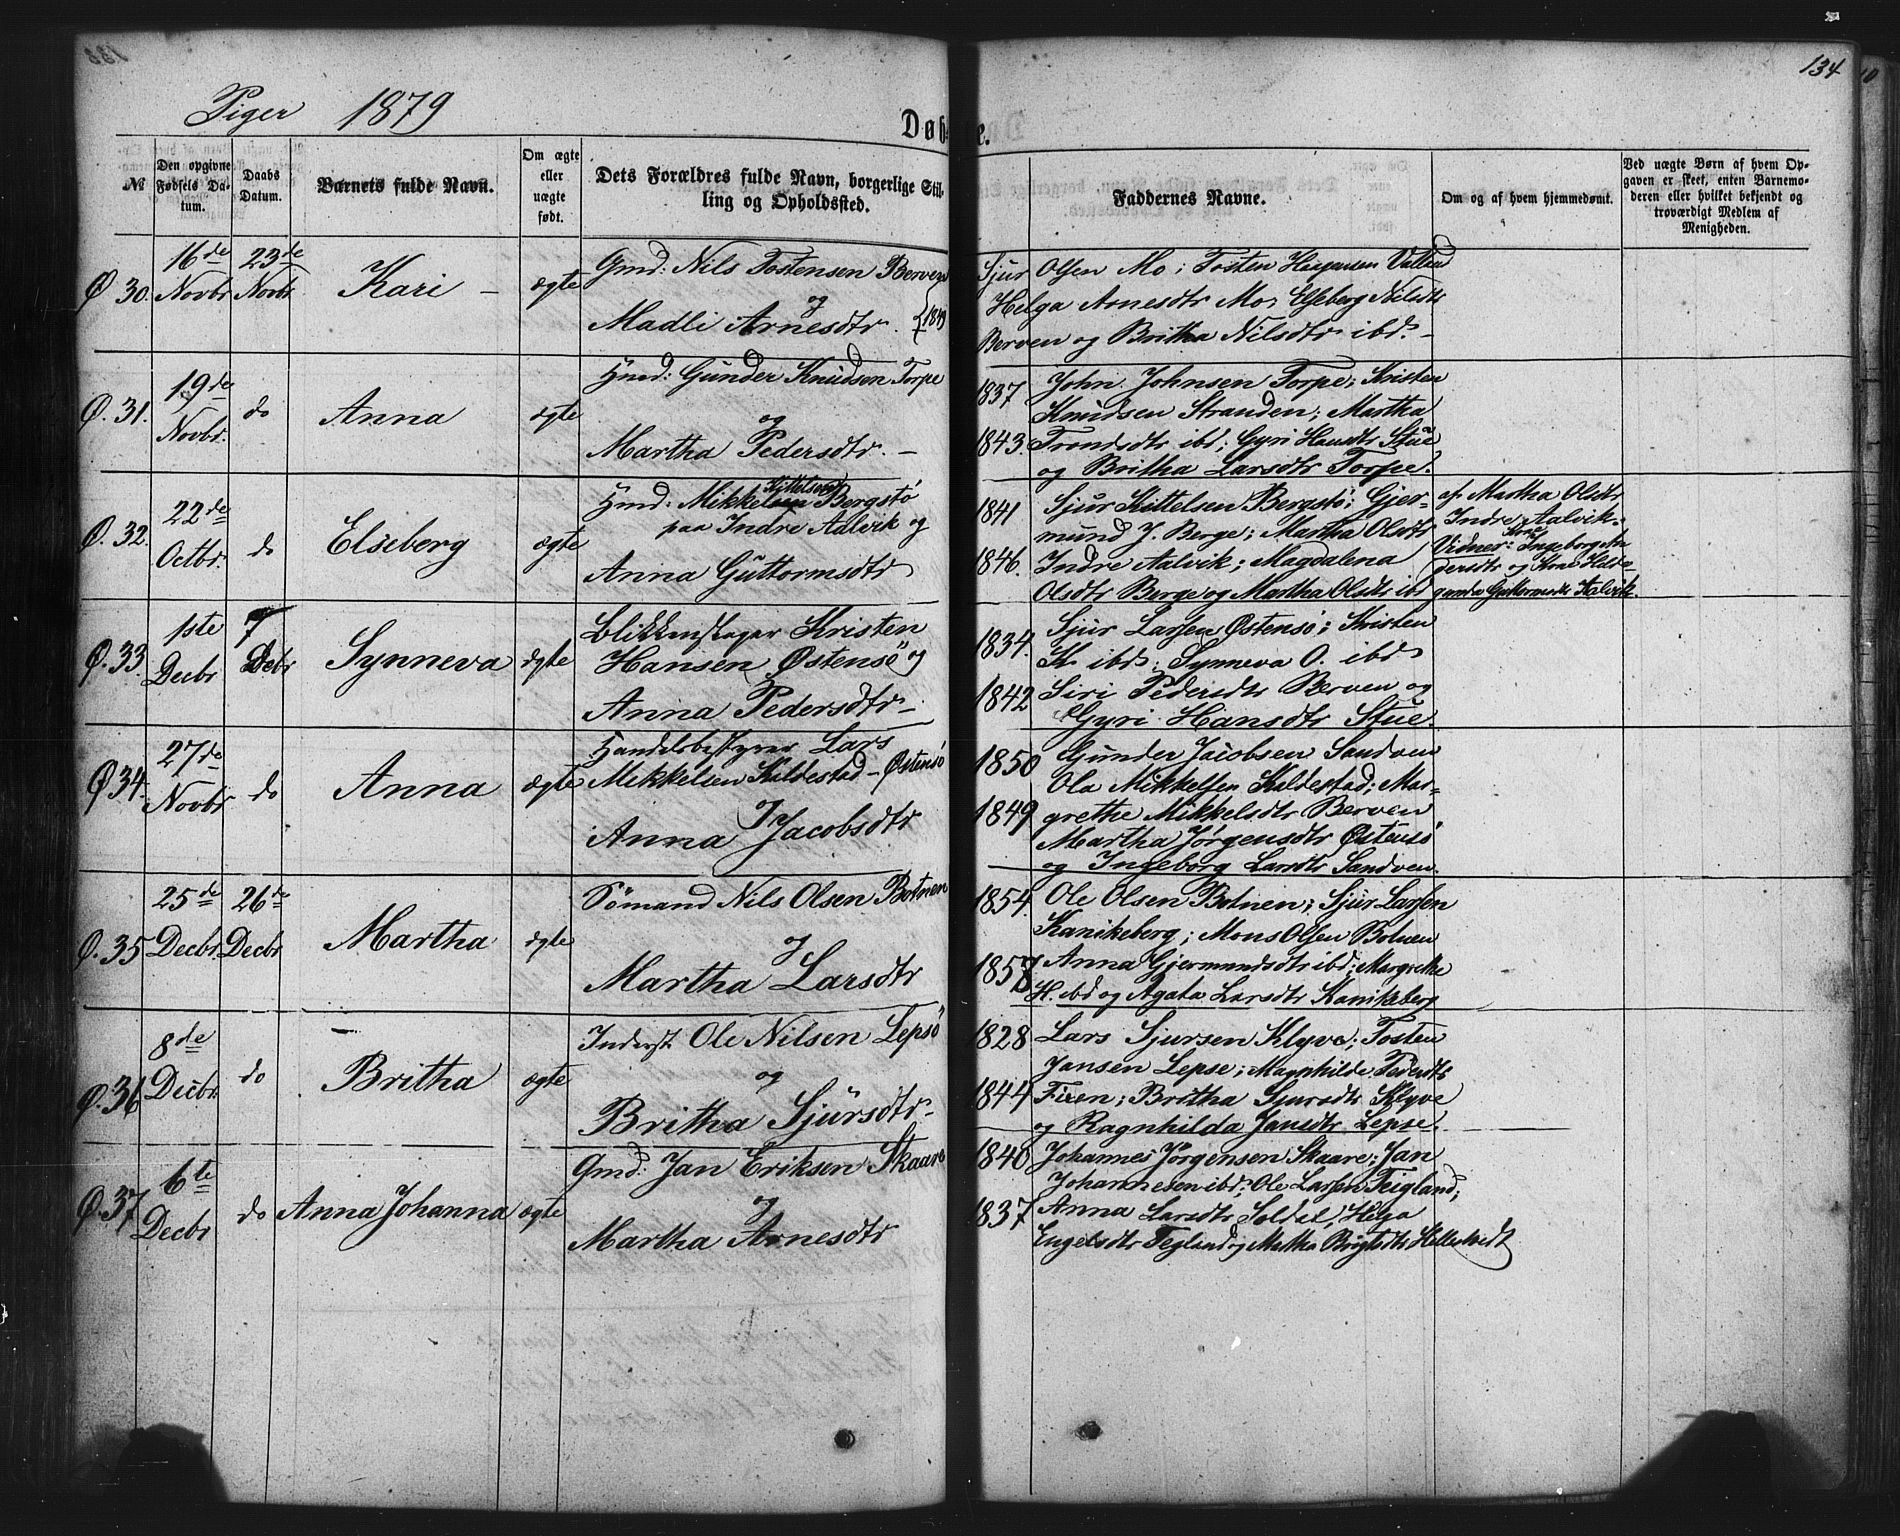 134
Piger 1879
Døb e.
№
Den opgivne Fødsels Datum.
Daabs Datum.
Barnets fulde Navn.
Om ægte eller uægte født.
Dets Forældres fulde Navn, borgerlige Stilling og Opholdssted.
Faddernes Navne.
Om og af hvem hjemmedøbt.
Ved uægte Børn af hvem Opgaven er skeet, enten Barnemoderen eller hvilket bekjendt og troværdigt Medlem af Menigheden.
Ø 30. 16de Novbr 23de Novbr Kari – ægte
Gmd: Nils Tostensen Berven
og
Madli Arnesdtr. {1849
Sjur Olsen Mo; Tosten
Helga Arnesdtr Mo; Elseberg Nilsdtr
Berven og Britha Nilsdtr ibd. –
Ø. 31. 19de Novbr. do Anna ægte
Hmd: Gunder Knudsen Torpe
og
Martha Pedersdtr. –
1837
1843.
John Johnsen Torpe; Kristen
Knudsen Stranden; Martha
Trondsdtr ibd; Gyri Hansdtr Stue
og Britha Larsdtr Torpe.
Ø. 32. 22de Octbr. do Elseberg ægte
Kittelsen
Hmd: Mikkelsen Bergstø
paa Indre Aalvik og
Anna Guttormsdtr
1841
1846.
Sjur Kittelsen Bergstø; Gjer-
mund J. Berge; Martha Olsdtr
Indre Aalvik; Magdalena
Olsdtr Berge og Martha Olsdtr ibd
af Martha Olsdtr
Indre Aalvik.
Vidner: Kone Ingeborg An
dersdtr og Kone Helde-
gunda Guttormsdtr Aalvik.
Ø. 33. 1ste Decbr 7 Decbr Synneva ægte
Blikkenslager Kristen
Hansen Østensø og
Anna Pedersdtr –
1834.
1842
Sjur Larsen Østensø; Kristen
K. ibd; Synneva O. ibd
Siri Pedersdtr Berven og
Gyri Hansdtr Stue.
Ø 34. 27de Novbr do Anna ægte
Handelsbestyrer Lars
Mikkelsen Kaldestad – Østensø
Anna Jacobsdtr
1850
1849
Gunder Jacobsen Sandven
Ola Mikkelsen Kaldestad; Mar-
grethe Mikkelsdtr Berven
Martha Jørgensdtr Østensø
og Ingeborg Larsdtr Sandven.
Ø. 35 25de Decbr 26de Decbr Martha ægte
Sømand Nils Olsen Botnen
og
Martha Larsdtr
1854.
1857
Ole Olsen Botnen; Sjur Larsen
Kanikeberg; Mons Olsen Botnen
Anna Gjermundsdtr ibd; Margrethe
H. ibd og Agata Larsdtr Kanikeberg
Ø. 36 8de Decbr do Britha ægte
Inderst Ole Nilsen Lepsø
og
Britha Sjursdtr –
1828
1844
Lars Sjursen Klyve; Tosten
Jansen Lepse; Magnhilde Pedersdtr
Fixen; Britha Sjursdtr Klyve
og Ragnhilda Jansdtr Lepse.
Ø. 37 6te Decbr do Anna Johanna ægte
Gmd: Jan Eriksen Skaare
og
Martha Arnesdtr
1840
1837
Johannes Jørgensen Skaare; Jan
Johannesen ibd; Ole Larsen Teigland;
Anna Larsdtr Soldal, Helga
Engelsdtr Tegland og Martha Brigtsdtr Hellestvedt